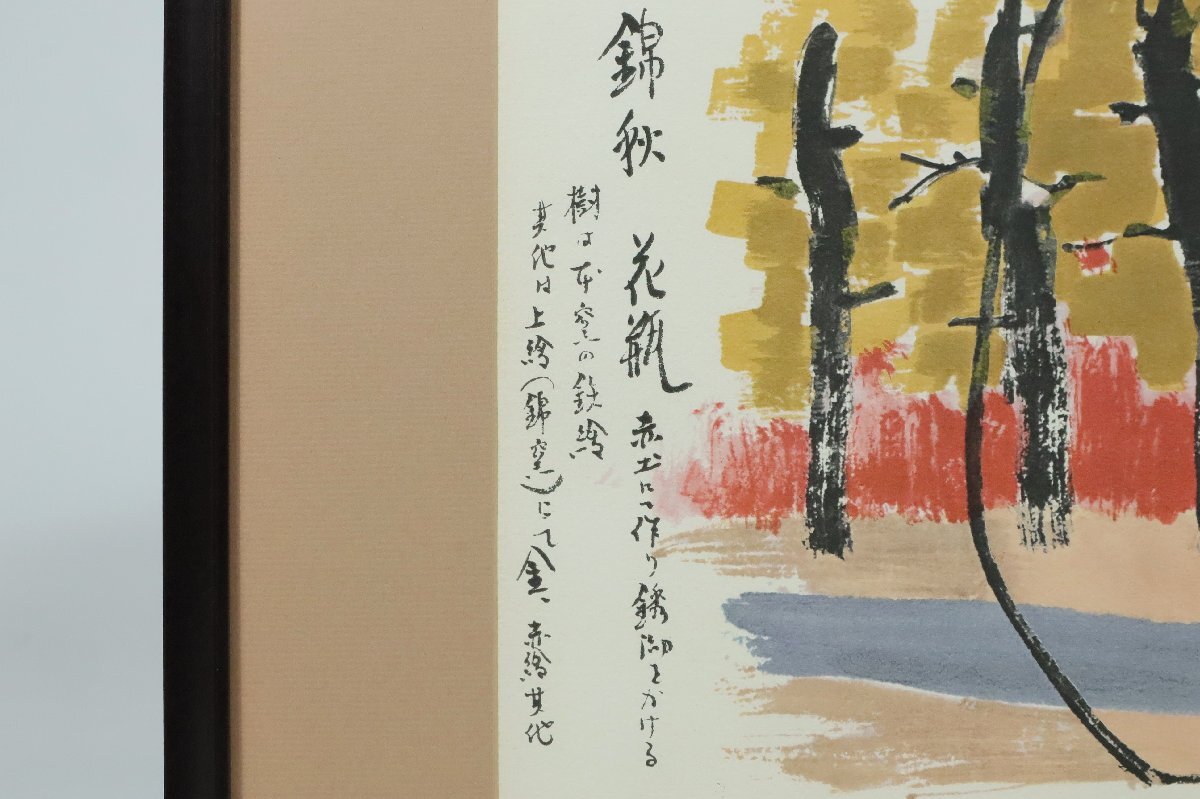 錦秋 花瓶 赤土にて作り銹泑をかける
樹は本窯の鉄繪
其他は上繪(錦窯)にて金、赤繪其他